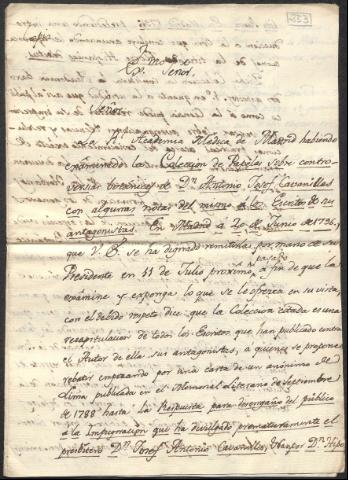 Exmo
Señor.
Señor.
La Rl Academia Médica de Madrid habiendo
examinado la Coleccion de Papeles sobre contro-
versias botánicas de Dn Antonio Josef Cavanilles
con algunas notas del mismo à los Escritos de sus
antagonistas. En Madrid à 20 de Junio de 1796. y
que V. E. se ha dignado remitirla por mano de su
Presidente en 11 de Julio proximo pasado à fin de que la
exâmine y exponga lo que se le ofrezca en su vista,
con el debido respeto dice: que la Coleccion citada es una
recapitulacion de todos los Escritos que han publicado contra
el Autor de ella sus antagonistas, à quienes se propone
rebatir empezando por una carta de un anónimo de
Lima publicada en el Memorial Literario de Septiembre
de 1788 hasta la Respuesta para desengaño del público
à la Impugnacion que ha divulgado prematuramente el
presbitero Dn Josef Antonio Cavanilles, su autor Dn Hipo